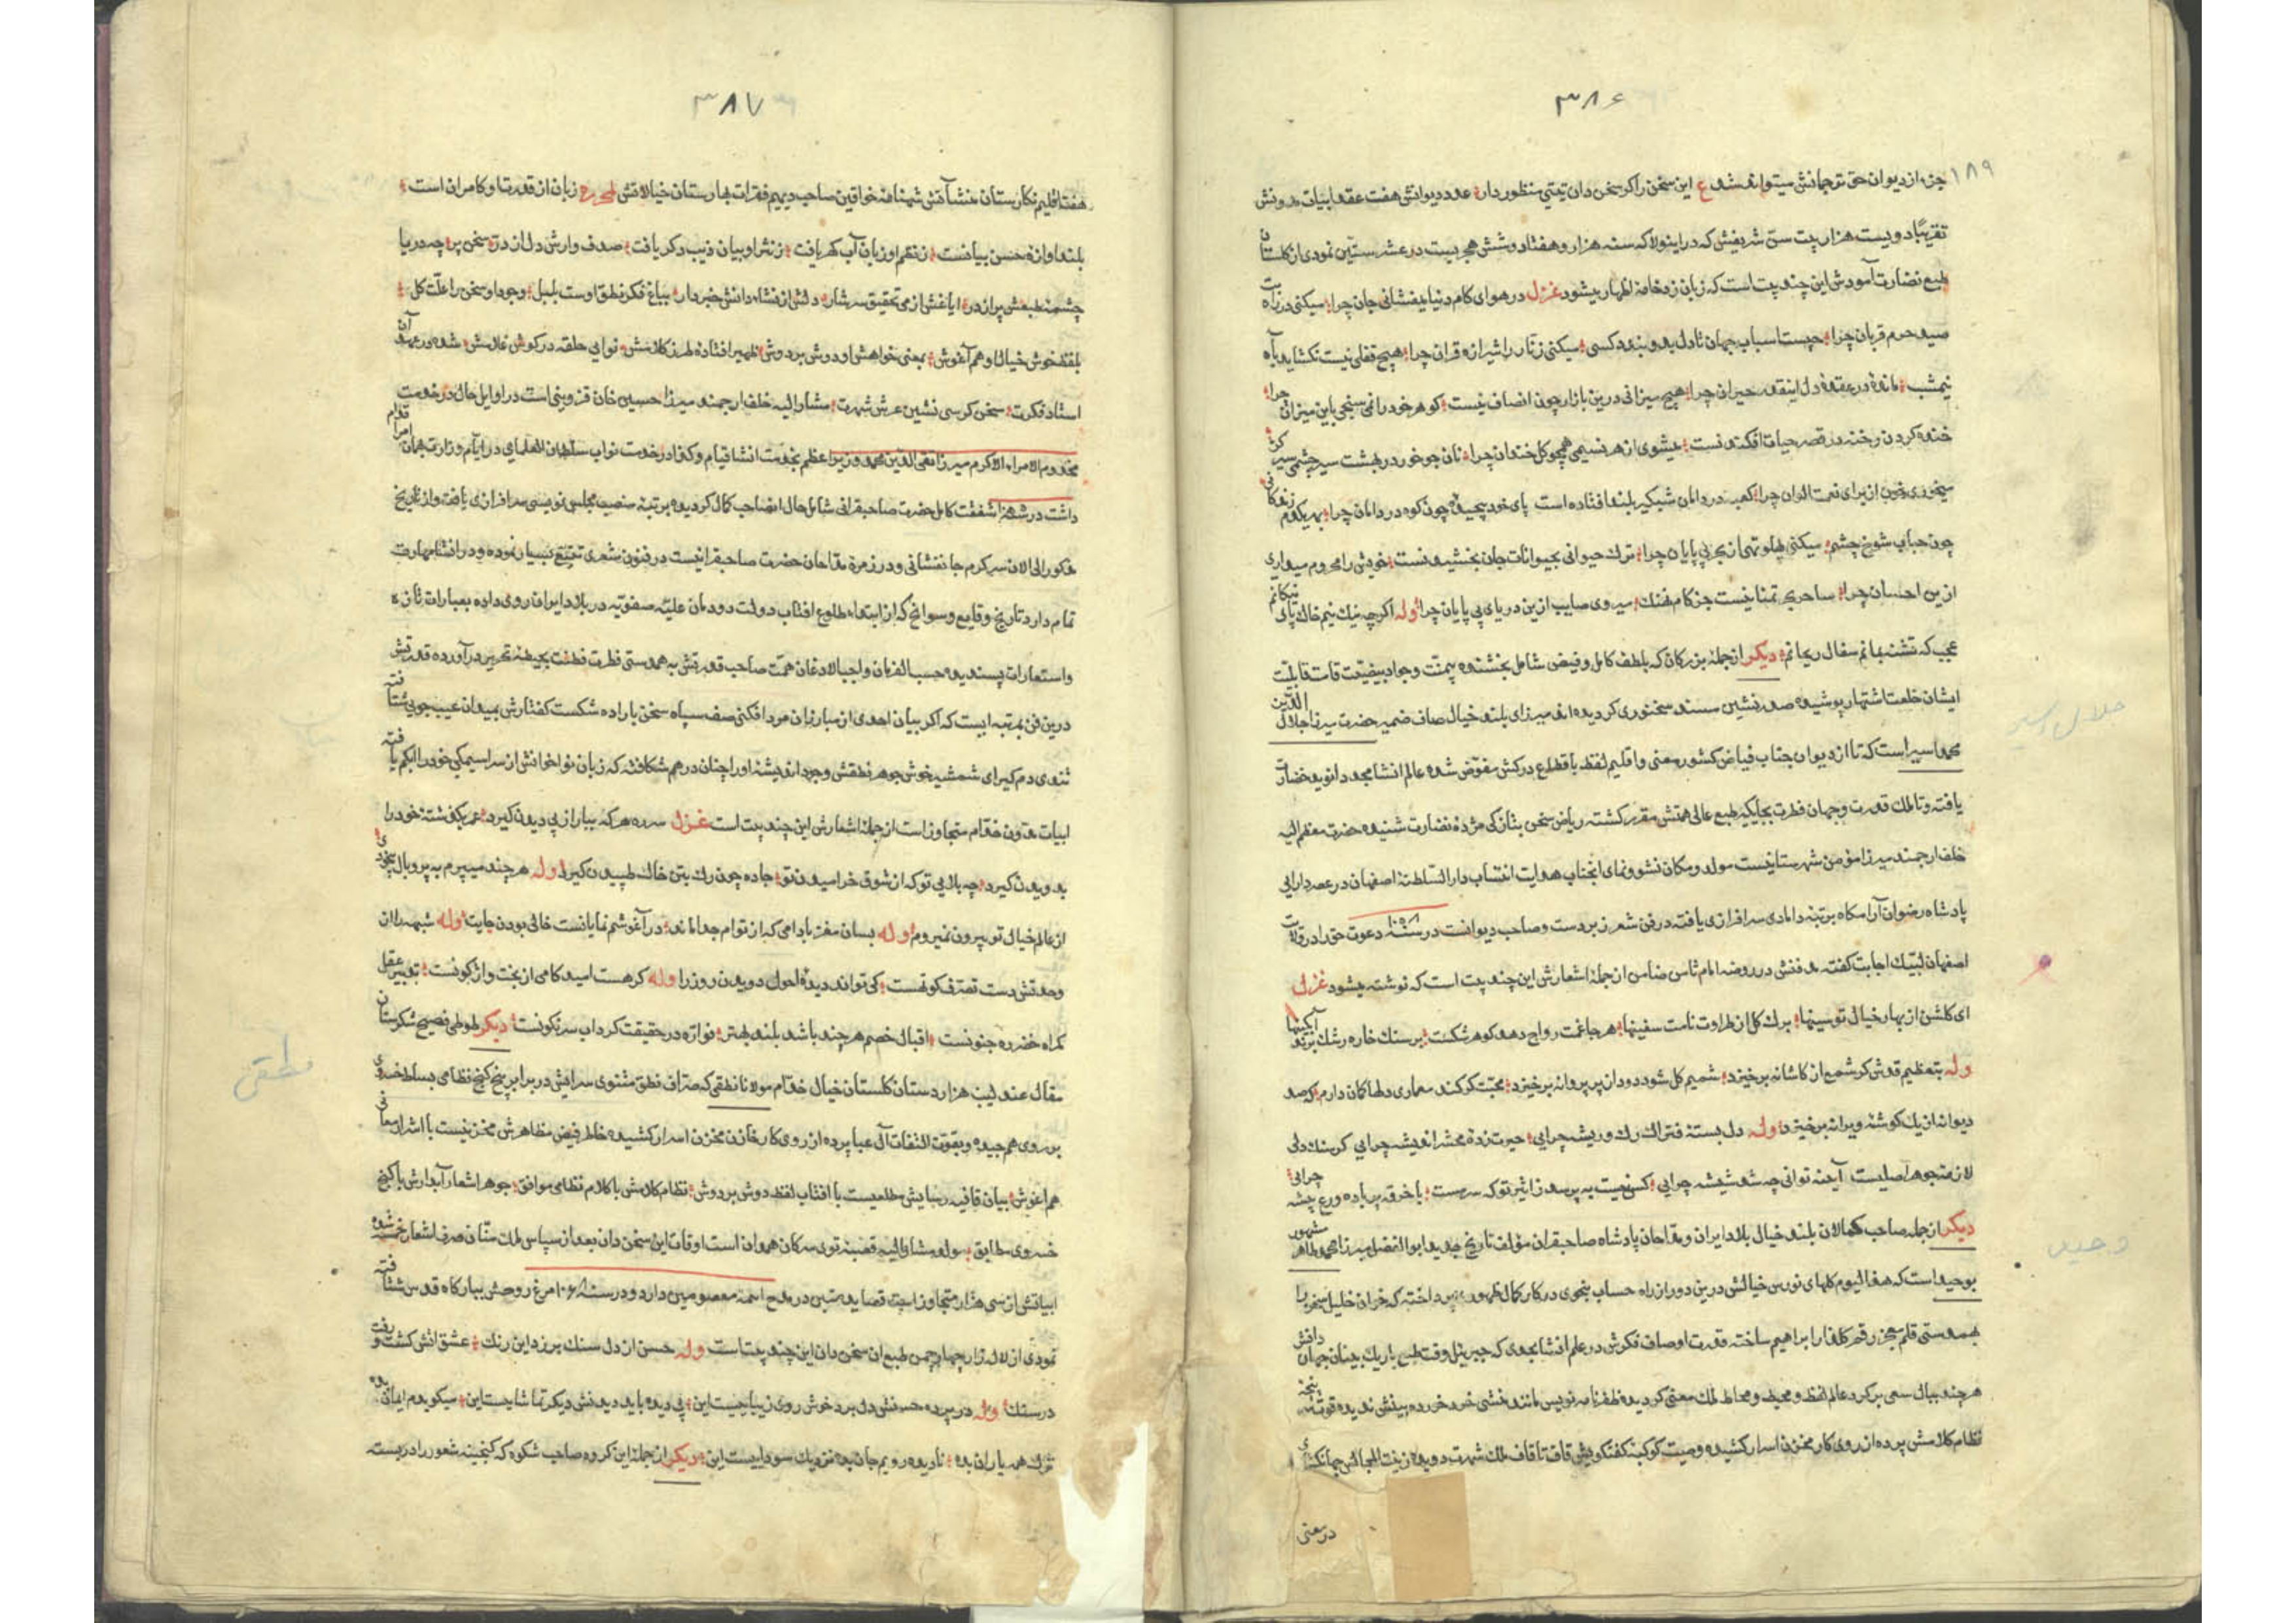 ۳۸۶
۱۸۹
جزء از دیوان حق ترجمانش میتواند شد ع این سخن را کر سخن دان یتیتی منظور دار عدد دیوانش هفت عقد ابیات مدونش
تقریبًا دویست هزار بیت سن شریفش که در اینولا که سنه هزار و هفتاد و شش هجریست در عشر ستین نمودی از کلستان
طبع نضارت آمودش این چند بیت است که زبان زد خامهٔ اظهار میشود غزل در هوای کام دنیا میفشانی جان چرا میکنی در راه بت
صید حرم قربان چرا چیست اسباب جهان تا دل بدو بندد کسی میکنی زنار را شیرازه قران چرا هیچ قفلی نیست نکشاید بآه
نیمشب ماندهٔ در عقدهٔ دل اینقدر حیران چرا هیچ میزانی درین بازار چون انصاف نیست کوهر خود را نمی سنجی باین میزان چرا
خنده کردن رخنه در قصر حیات افکندنست میشوی از هر نسیمی همچو کل خندان چرا نان جو خور در بهشت سیر چشمی سیر کرد
میخوری خون از برای نعمت الوان چرا کعبه در دامان شبکیر بلند افتاده است پای خود پیچیدهٔ چون کوه در دامان چرا بهر یکدم زندکانی
چون حباب شوخ چشم میکنی پهلو تهی از بحر بی پایان چرا ترک حیوانی بحیوانات جان بخشیدنست خویش را محروم میداری
ازین احسان چرا ساحری تمنا نیست جز کام نهنک میروی صایب ازین دریای بی پایان چرا وله اکرچه نیک نیم خاک پای نیکانم
عجب که تشنه بمانم سفال ریحانم دیکر از جمله بزرکان که بلطف کامل و فیض شامل بخشنده بیمنت و جواد بیضنت قامت قابلیت
ایشان خلعت اشتهار پوشیده صدر نشین مسند سخنوری کردیده اند میرزای بلند خیال صاف ضمیر حضرت میرزا جلال الدین
محمد اسیر است که تا از دیوان جناب فیاض کشور معنی و اقلیم لفظ باقطاع درکش مفوض شده عالم انشا مجددا نوید خضارت
یافته و تا ملک قدرت و جهان فطرت بجایکیر طبع عالی همتش مقرر کشته ریاض سخن بتازکی مژدهٔ نضارت شنیده حضرت معظم الیه
خلف ارجمند میرزا مؤمن شهرستانیست مولد و مکان نشو و نمای انجناب هدایت انتساب دار السلطنهٔ اصفهان در عصر دارایی
پادشاه رضوان آرامکاه برتبهٔ دامادی سرافرازی یافته در فن شعر زبردست و صاحب دیوانست در سنه ۱۰۵۸ دعوت حق را در ولایت
اصفهان لبیک اجابت کفته مدفنش در روضه امام ثامن ضامن از جملهٔ اشعارش این چند بیت است که نوشته میشود غزل
ای کلشن از بهار خیال تو سینها برک کل از طراوت نامت سفینها هر جا غمت رواج دهد کوهر شکست بر سنک خاره رشک برند آبکینها
وله بتعظیم قدوش کر شمع از کاشانه برخیزد شمیم کل شود دود از پر پروانه برخیزد محبت کو کند معماری دلها کمان دارم که صد
دیوانه از یک کوشهٔ ویرانه برخیزد وله دل بستهٔ فتراک رک و ریشه چرایی حیرت زدهٔ محشر اندیشه چرایی کر سنک دلی
لازمهٔ جوهر اصلیست آینه توانی چه شد شیشه چرایی کس نیست به پرسد ز اثیر تو که سرمست با خرقه پر باده ورع پیشه چرایی
دیکر از جمله صاحب کمالان بلند خیال بلاد ایران و مداحان پادشاه صاحبقران مؤلف تاریخ جدید ابو الفضل میرزا محمد طاهر مشهور
بوحید است که هذا الیوم کلهای نورس خیالش درین دور از راه حساب بنحوی در کار کمال ظهور پرداخته که خزان خلیل سفر را
بهمدستی قلم معجز رقم کلزار ابراهیم ساخته قدرت اوصاف فکرش در علم انشا بحدی که جبریل وقت طبع باریک بینان جهان دانش
هر چند ببال سعی بر کرد عالم لفظ و محیط و محاط ملک معنی کردیده ظفرنامه نویس مانند منشی خرد خرده بینش ندیده قوت پنجهٔ
نظام کلامش پرده از روی کار مخزن اسرار کشیده و صیت کوکبهٔ کفتکویش قاف تا قاف ملک شهرت دویده زینت المجالس جهانکشای
در معنی
جلال اسیر
وحید
۳۸۷
هفت اقلیم نکارستان منشآتش شهنامهٔ خواقین صاحب دیهیم فقرات بهارستان خیالاتش زبان از قدرت او کامران است
بلند اوازه حسن بیانست ز نظم او زبان آب کهر یافت ز نثر او بیان زیب دکر یافت صدف وارش دل از در سخن پر چه دریا
چشمهٔ طبعش پر از در ایاغش از می تحقیق سرشار دلش از نشاء دانش خبردار بباغ فکر نطق اوست بلبل وجود او سخن را علت کل
بلفظ خوش خیال او هم آغوش بمعنی خواهش او دوش بر دوش ظهیر افتاده طرز کلامش نوایی حلقه در کوش غلامش شده در عهد آن
استاد فکرت سخن کرسی نشین عرش شهرت مشارالیه خلف ارجمند میرزا حسین خان قزوینی است در اوایل حال در خدمت
مخدوم الامراء الاکرم میرزا تقی الدین محمد وزیر اعظم بخدمت انشا قیام و کذا در خدمت نواب سلطان العلمای در ایام وزارت همان امر اقدام
داشت در شفقت کامل حضرت صاحبقرانی شامل حال انصاحب کمال کردیده برتبهٔ منصب مجلس نویسی سرافرازی یافت و از تاریخ
مذکور الی الان سرکرم جانفشانی و در زمرهٔ مداحان حضرت صاحبقرانیست در فنون شعری تتبع بسیار نموده و در انشا مهارت
تمام دارد تاریخ وقایع و سوانح که از ابتداء طلوع افتاب دولت دودمان علیه صفویه در بلاد ایران روی داده بعبارات تازه
و استعارات پسندیده حسب الفرمان واجب الاذعان همت صاحب قدرتش به همدستی فطرت فطنت بحیطهٔ تحریر در آورده قدرتش
درین فن بمرتبه ایست که اکر بیان احدی از مبارزان مرد افکنی صف سپاه سخن باراده شکست کفتارش بمیدان عیب جویی شتافته
تندی دم کیرای شمشیر خوش جوهر نطقش وجود اندیشهٔ او را چنان در هم شکافته که زبان نواخوانش از سراسیمکی خود را ابکم یافته
ابیات مدون متجاوز است از جملهٔ اشعارش این چند بیت است غزل سره هر که بباراز پی دیدن کیرد عمر بکذشتهٔ خود را
بدویدن کیرد چه بلایی تو که از شوق خرامیدن تو جاده چون رک بتن خاک طپیدن کیرد وله هر چند میپرم به پر و بال بیخودی
از عالم خیال تو بیرون نمیروم وله بسان مغز بادامی که از توام جدا ماند در آغوشم نمایانست خالی بودن جایت وله شبهه را از
وحدتش دست تصرف کوتهست کی تواند دیدهٔ احول دو دیدن روز را وله کر هست امید کامی از بخت واژکونست تعبیر عقل
کمراه خضر ره جنونست اقبال خصم هر چند باشد بلند بهتر فواره در حقیقت کرداب سرنکونست دیکر طوطی فصیح شکرستان
مقال عندلیب هزار دستان کلستان خیال مولانا نطقی که صراف نطق مثنوی سرایش در برابر پنج کنج نظامی بساط خسروی
بر روی هم چیده و بقوت التفات آل عبا پرده از روی کار خازن مخزن اسرار کشیده خاطر فیض مظاهرش مخزنیست با اسرار معانی
هم اغوش بیان قافیه رسایش مطلعیست با افتاب لفظ دوش بر دوش نظام کلامش با کلام نظامی موافق جوهر اشعار آبدارش با کنج
خسروی مطابق مولد مشار الیه قصبهٔ توی سرکان همدان است اوقات این سخن دان بعد از سپاس ملک منان صرف اشعار شده
ابیاتش از سی هزار متجاوز است قصاید متین در مدح ائمه معصومین دارد و در سنه ۱۰۶۸ مرغ روحش ببارکاه قدس شتافته
نمودی از لاله زار چهار چمن طبع ان سخن دان این چند بیت است وله حسن از دل سنک پرزد این رنک عشق اتش کشت و رفت
در سنک وله در پرده حسنش دل برد خوش روی زیبا چیست این پی دیده باید دیدنش دیکر تماشایست این میکویدم ایمان بده
ترک همه یاران بده نادیده رویم جان بده نزدیک سوداییست این دیکر از جملهٔ این کروه صاحب شکوه که کنجینه شعور را در بسته
نطقی